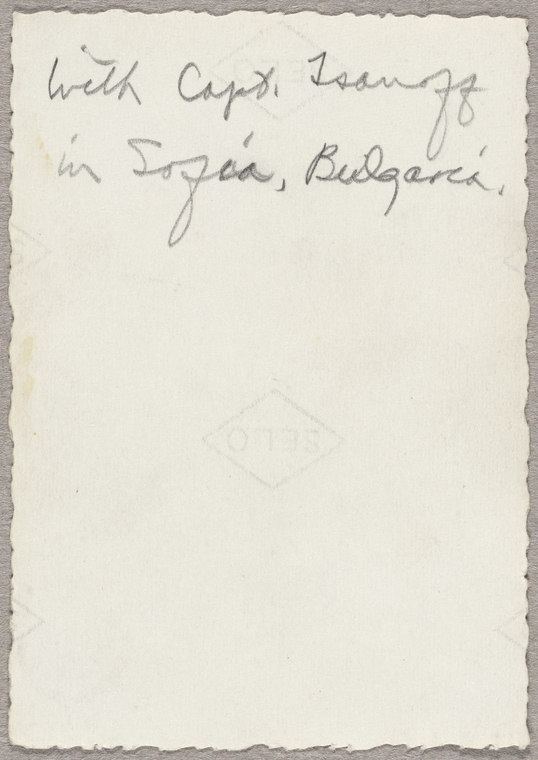 With Capt. Isanoff
in Sofia, Bulgaria.
SELO
SELO